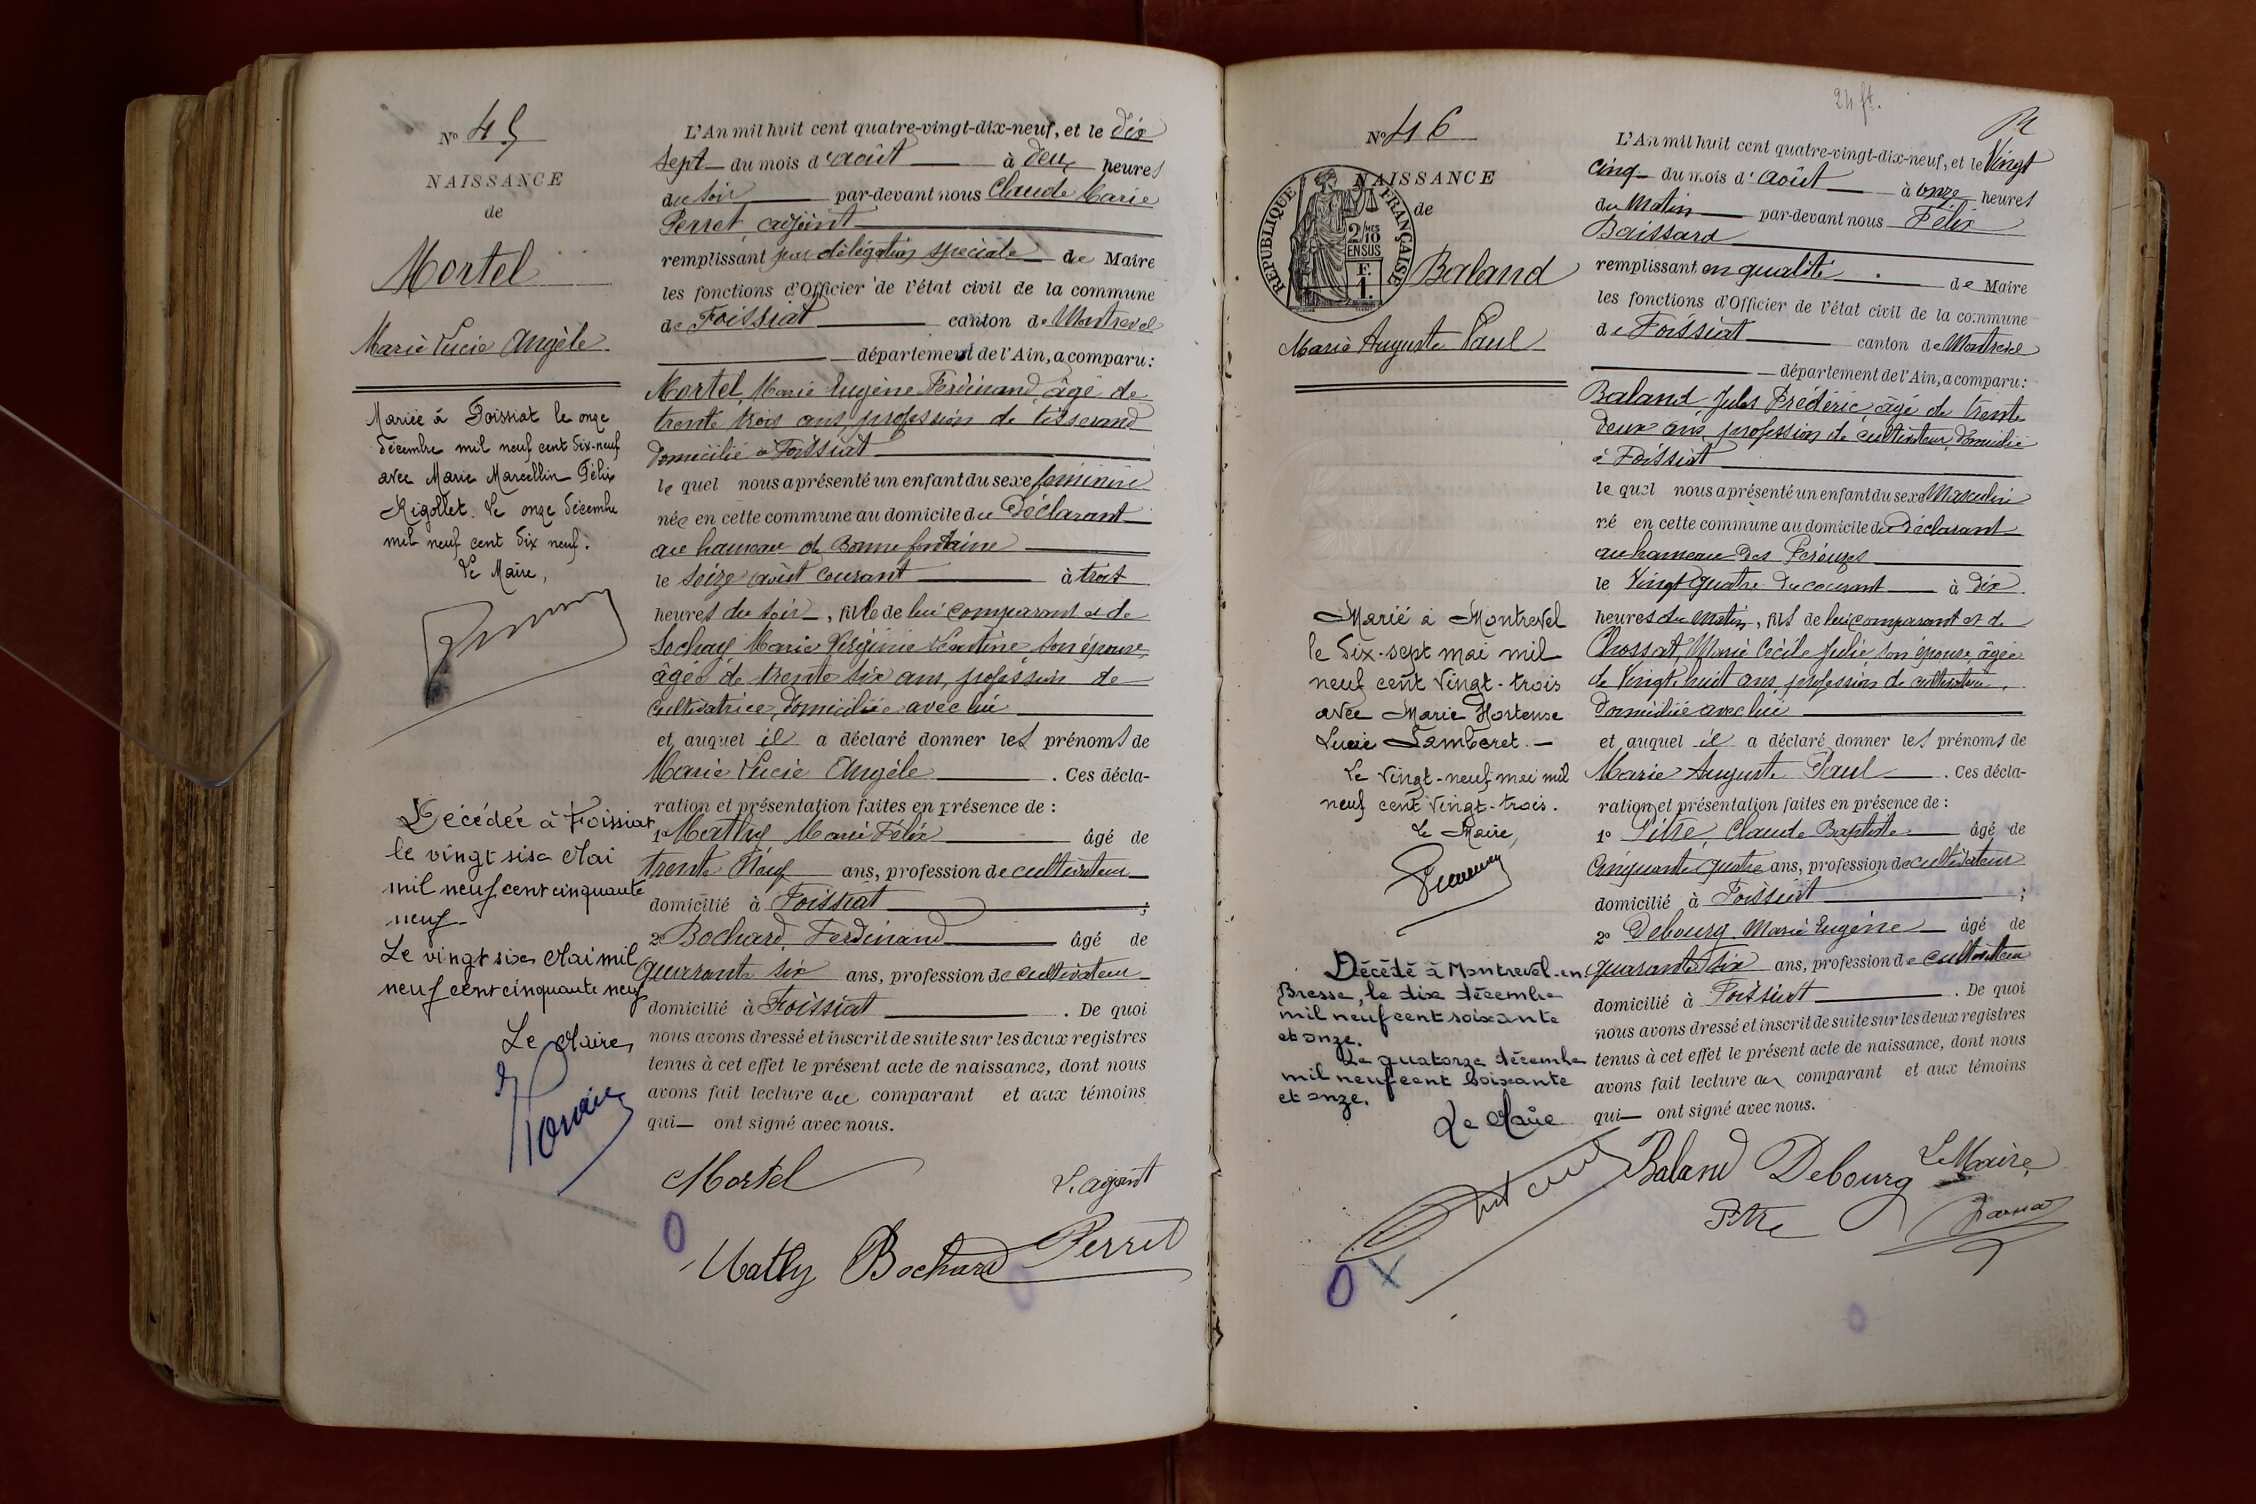 N° 45
NAISSANCE
de
Mortel
Marie Lucie Angèle
Mariée à Foissiat le onze
décembre mil neuf cent dix-neuf
avec Marie Marcellin Félix
Rigollet. Le onze décembre
mil neuf cent dix neuf.
Le Maire,
Décédée à Foissiat
le vingt six Mai
mil neuf cent cinquante
neuf
Le vingt six Mai mil
neuf cent cinquante neuf
Le Maire,
L'An mil huit cent quatre-vingt-dix-neuf, et le dix
sept du mois d'août à deux heures
du soir par-devant nous Claude Marie
Perret adjoint
remplissant par délégation spéciale de Maire
les fonctions d'Officier de l'état civil de la commune
de Foissiat canton de Montrevel
département de l'Ain, a comparu:
Mortel, Marie Eugène Ferdinand, âgé de
trente trois ans, profession de tisserand
domicilié à Foissiat
le quel nous a présenté un enfant du sexe féminin
née en cette commune au domicile du Déclarant
au hameau de Bonnefontaine
le seize août courant à trois
heures du soir, fille de lui comparant et de
Sochay Marie Virginie Léontine son épouse,
âgée de trente six ans, profession de
cultivatrice, domiciliée avec lui
et auquel il a déclaré donner les prénoms de
Marie Lucie Angèle. Ces décla-
ration et présentation faites en présence de :
1° Mathy Marie Félix âgé de
trente Neuf ans, profession de cultivateur
domicilié à Foissiat ;
2° Bochard, Ferdinand âgé de
quarante six ans, profession de cultivateur
domicilié à Foissiat. De quoi
nous avons dressé et inscrit de suite sur les deux registres
tenus à cet effet le présent acte de naissance, dont nous
avons fait lecture au comparant et aux témoins
qui ont signé avec nous.
Mortel L'adjoint
Mathy Bochard Perret
24 ft.
N° 46
NAISSANCE
de
RÉPUBLIQUE FRANÇAISE
2/10 MES
EN SUS
F.
1.
Baland
Marie Auguste Paul
Marié à Montrevel
le dix-sept mai mil
neuf cent vingt-trois
avec Marie Hortense
Lucie Tamberet.
Le vingt-neuf mai mil
neuf cent vingt-trois.
Le Maire,
Décédé à Montrevel-en
Bresse, le dix décembre
mil neuf cent soixante
et onze.
Le quatorze décembre
mil neuf cent soixante
et onze.
Le Maire
L'An mil huit cent quatre-vingt-dix-neuf, et le Vingt
cinq du mois d'août à onze heures
du Matin par-devant nous Félix
Baissard
remplissant en qualité de Maire
les fonctions d'Officier de l'état civil de la commune
de Foissiat canton de Montrevel
département de l'Ain, a comparu:
Baland Jules Frédéric âgé de trente
deux ans, profession de cultivateur, domicilié
à Foissiat
le quel nous a présenté un enfant du sexe Masculin
né en cette commune au domicile du Déclarant
au hameau des
le Vingt quatre du courant à dix
heures du matin, fils de lui comparant et de
Chossat, Marie Cécile Julie, son épouse, âgée
de Vingt huit ans, profession de cultivateur,
domiciliée avec lui
et auquel il a déclaré donner les prénoms de
Marie Auguste Paul. Ces décla-
ration et présentation faites en présence de :
1° Pitre, Claude Baptiste âgé de
Cinquante quatre ans, profession de cultivateur
domicilié à Foissiat ;
2° Debourg Marie Eugène âgé de
quarante six ans, profession de cultivateur
domicilié à Foissiat. De quoi
nous avons dressé et inscrit de suite sur les deux registres
tenus à cet effet le présent acte de naissance, dont nous
avons fait lecture au comparant et aux témoins
qui ont signé avec nous.
Baland Debourg Le Maire
Pitre